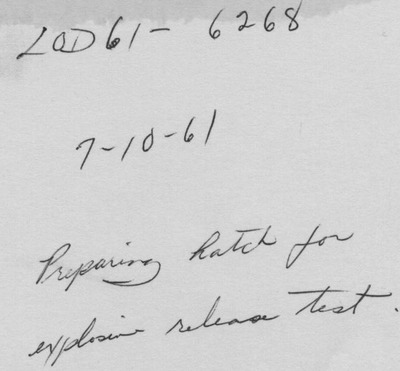 LOD61- 6268
7-10-61
Preparing hatch for
explosive release test.